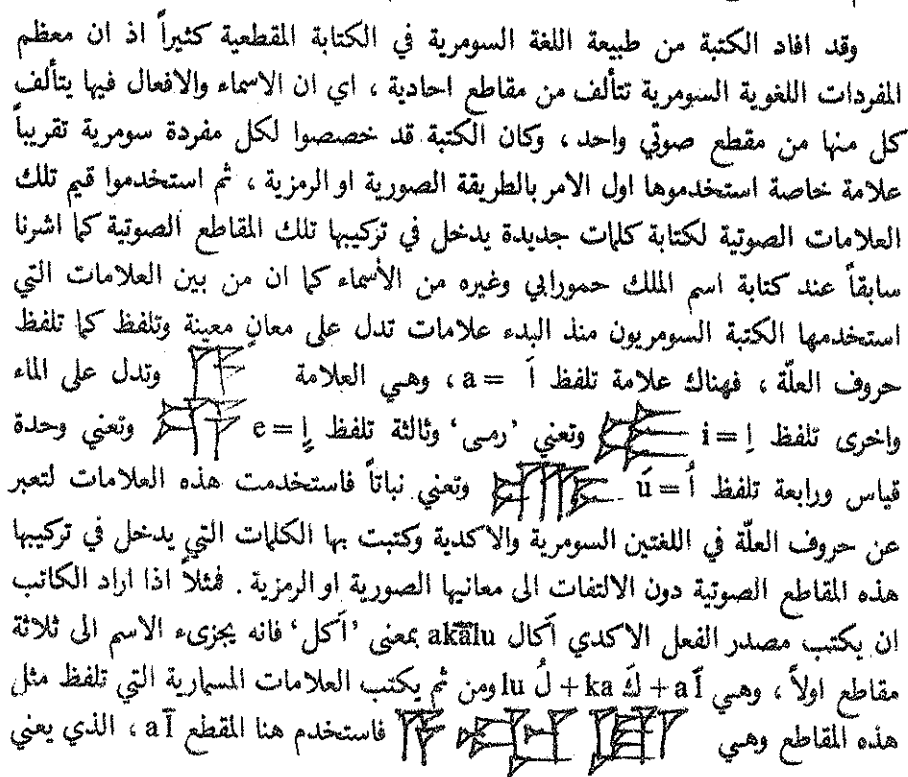 وقد افاد الكتبة من طبيعة اللغة السومرية في الكتابة المقطعية كثيراً اذ ان معظم
المفردات اللغوية السومرية تتألف من مقاطع احادية ، اي ان الاسماء والافعال فيها يتألف
كل منها من مقطع صوتي واحد ، وكان الكتبة قد خصصوا لكل مفردة سومرية تقريباً
علامة خاصة استخدموها اول الامر بالطريقة الصورية او الرمزية ، ثم استخدموا قيم تلك
العلامات الصوتية لكتابة كلمات جديدة يدخل في تركيبها تلك المقاطع الصوتية كما اشرنا
سابقاً عند كتابة اسم الملك حمورابي وغيره من الأسماء كما ان من بين العلامات التي
استخدمها الكتبة السومريون منذ البدء علامات تدل على معانٍ معينة وتلفظ كما تلفظ
حروف العلّة ، فهناك علامة تلفظ اَ = a ، وهي العلامة وتدل على الماء
واخرى تلفظ إ = i وتعني 'رمى' وثالثة تلفظ إِ = e وتعني وحدة
قياس ورابعة تلفظ أُ = ú وتعني نباتاً فاستخدمت هذه العلامات لتعبر
عن حروف العلّة في اللغتين السومرية والاكدية وكتبت بها الكلمات التي يدخل في تركيبها
هذه المقاطع الصوتية دون الالتفات الى معانيها الصورية او الرمزية . فمثلاً اذا اراد الكاتب
ان يكتب مصدر الفعل الاكدي أكال akālu بمعنى 'أكل' فانه يجزىء الاسم الى ثلاثة
مقاطع اولاً ، وهي آ a + كَ ka + لُ lu ومن ثم يكتب العلامات المسمارية التي تلفظ مثل
هذه المقاطع وهي فاستخدم هنا المقطع آ a ، الذي يعني